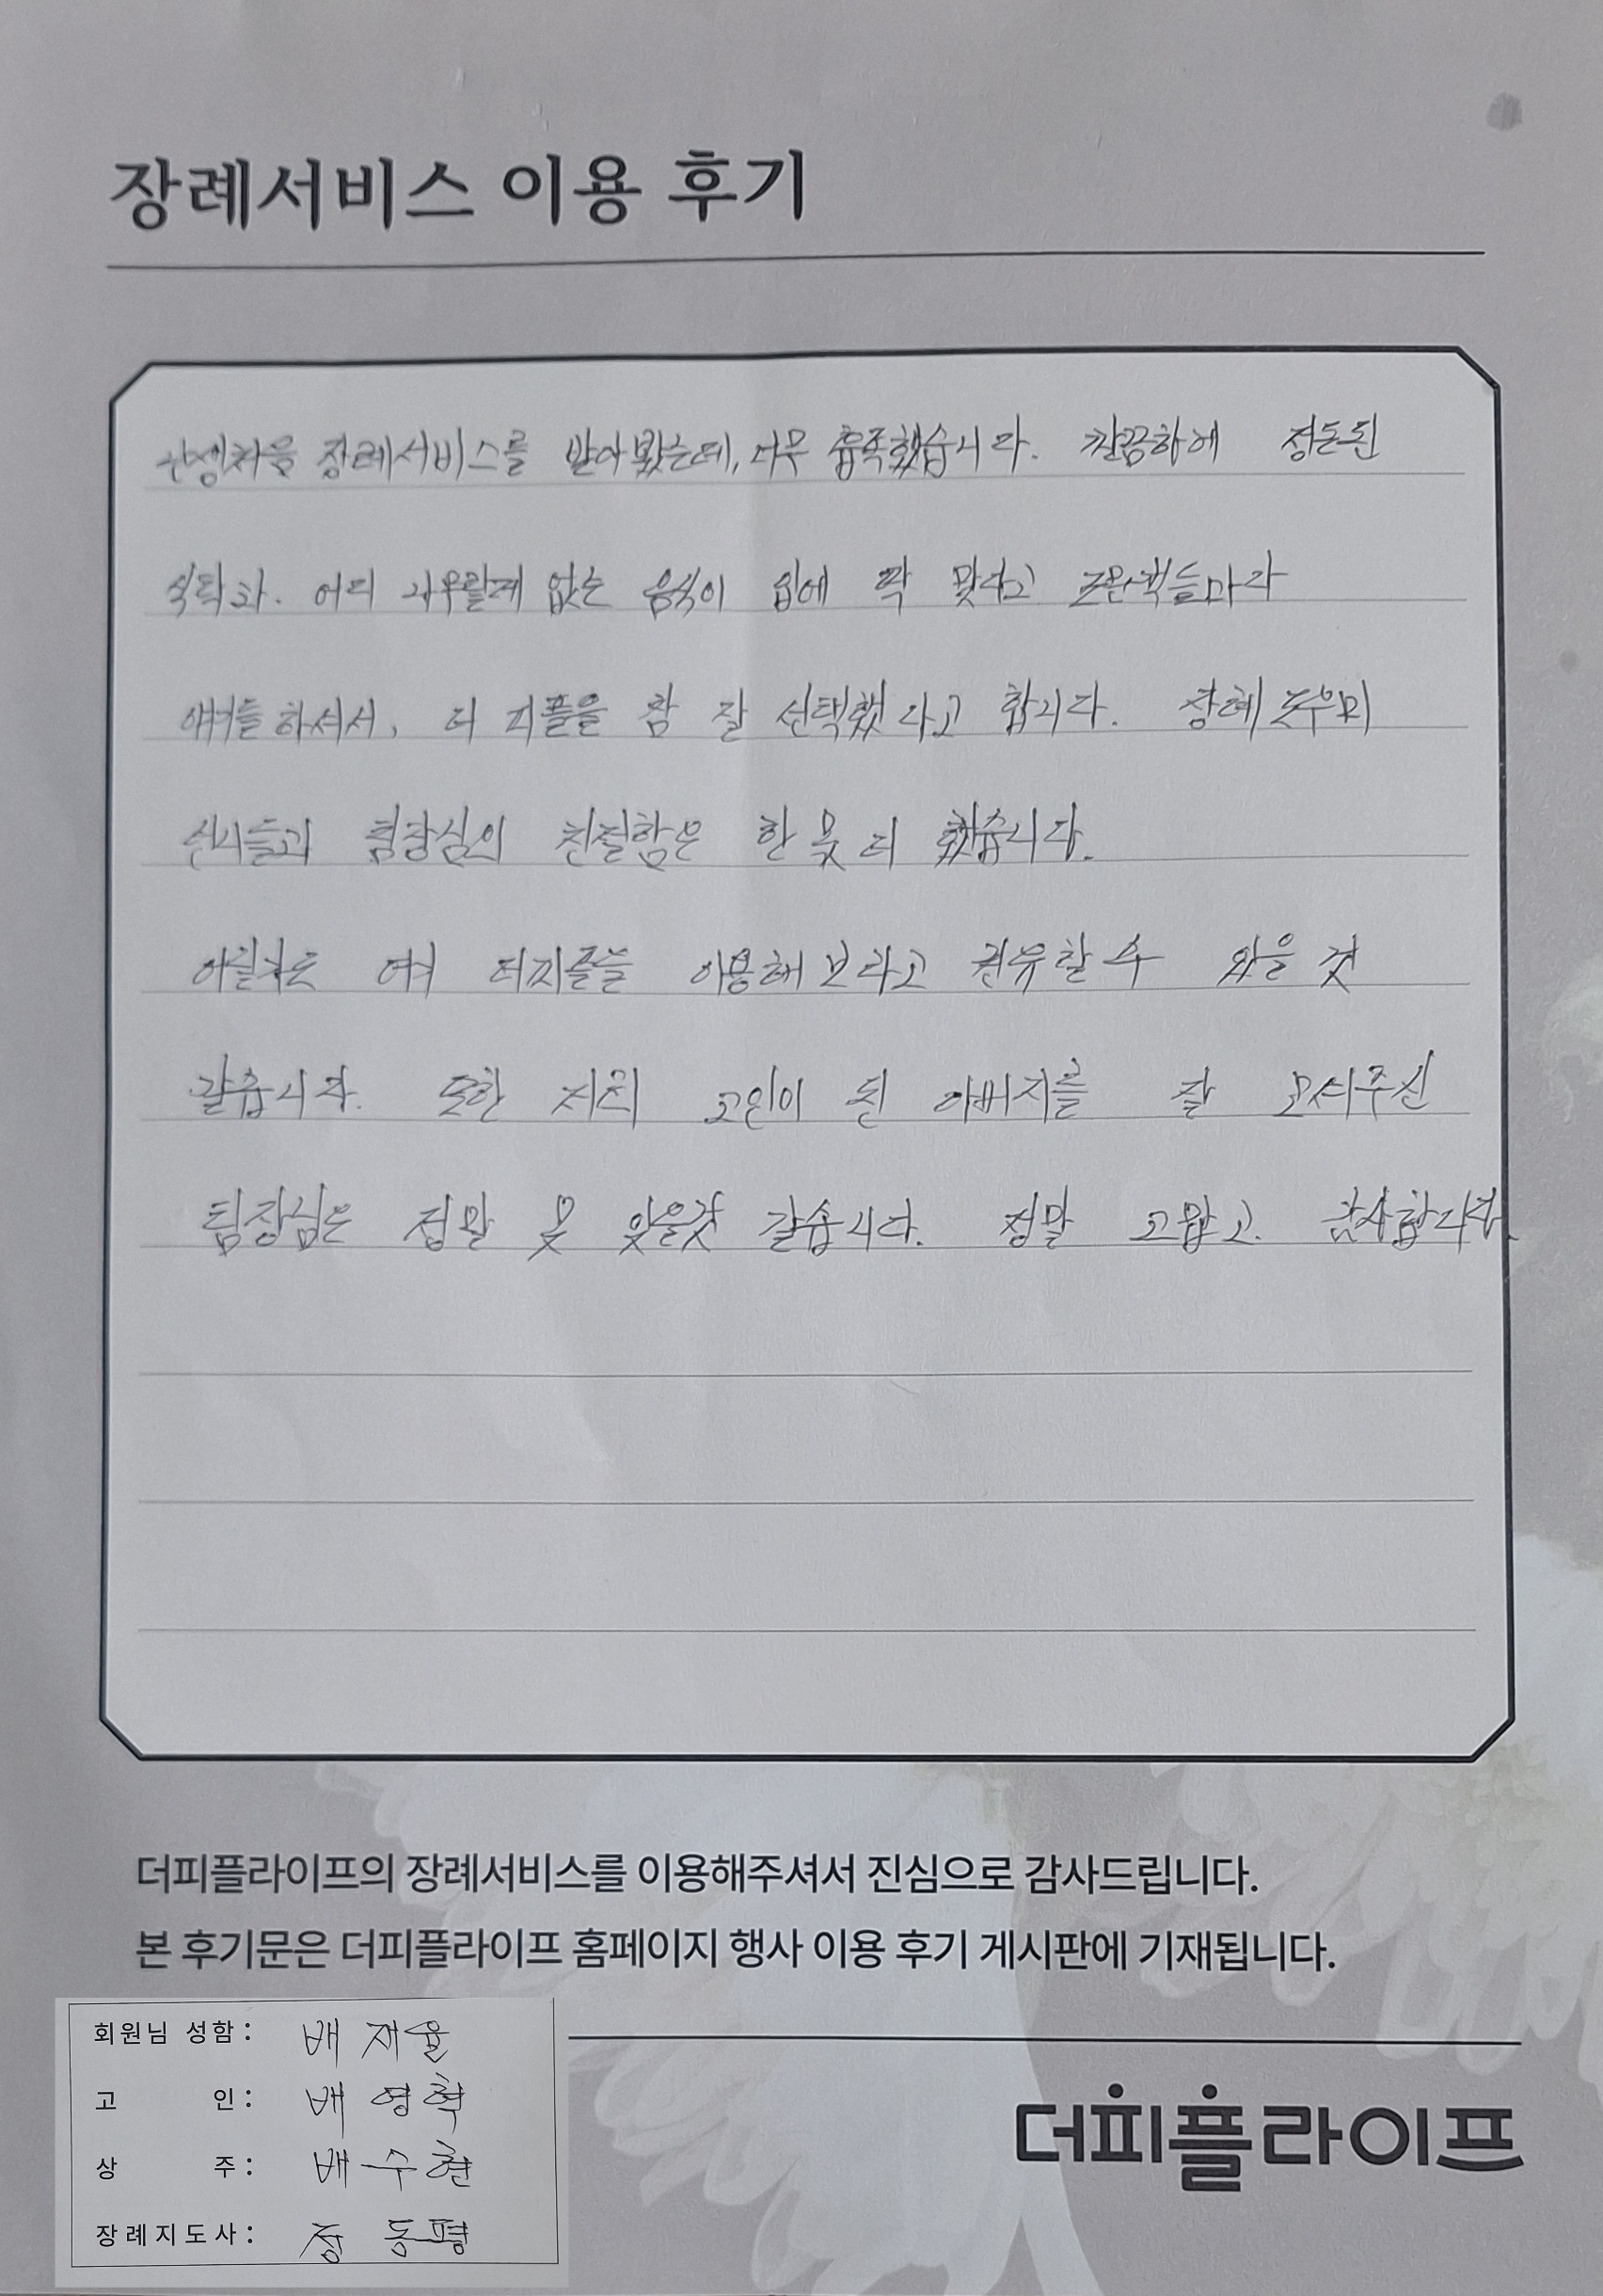 장례서비스 이용 후기
난생처음 장례서비스를 받아봤는데, 너무 흡족했습니다. 깔끔하에 정돈된
식탁과. 어디 나무랄데 없는 음식이 입에 딱 맞다고 조문객들마다
얘기들 하셔서, 더 피플을 참 잘 선택했다고 합니다. 장례도우미
언니들과 팀장님의 친절함은 한 몫 더 했습니다.
여기 더피플을 이용해보라고 권유할 수 있을 것
같습니다. 또한 저희 고인이 된 아버지를 잘 모셔주신
팀장님은 정말 못 잊을것 같습니다. 정말 고맙고. 감사합니다.
더피플라이프의 장례서비스를 이용해주셔서 진심으로 감사드립니다.
본 후기문은 더피플라이프 홈페이지 행사 이용 후기 게시판에 기재됩니다.
회원님 성함: 배재율
고 인: 배영혁
상 주: 배수현
장례지도사: 정동평
더피플라이프